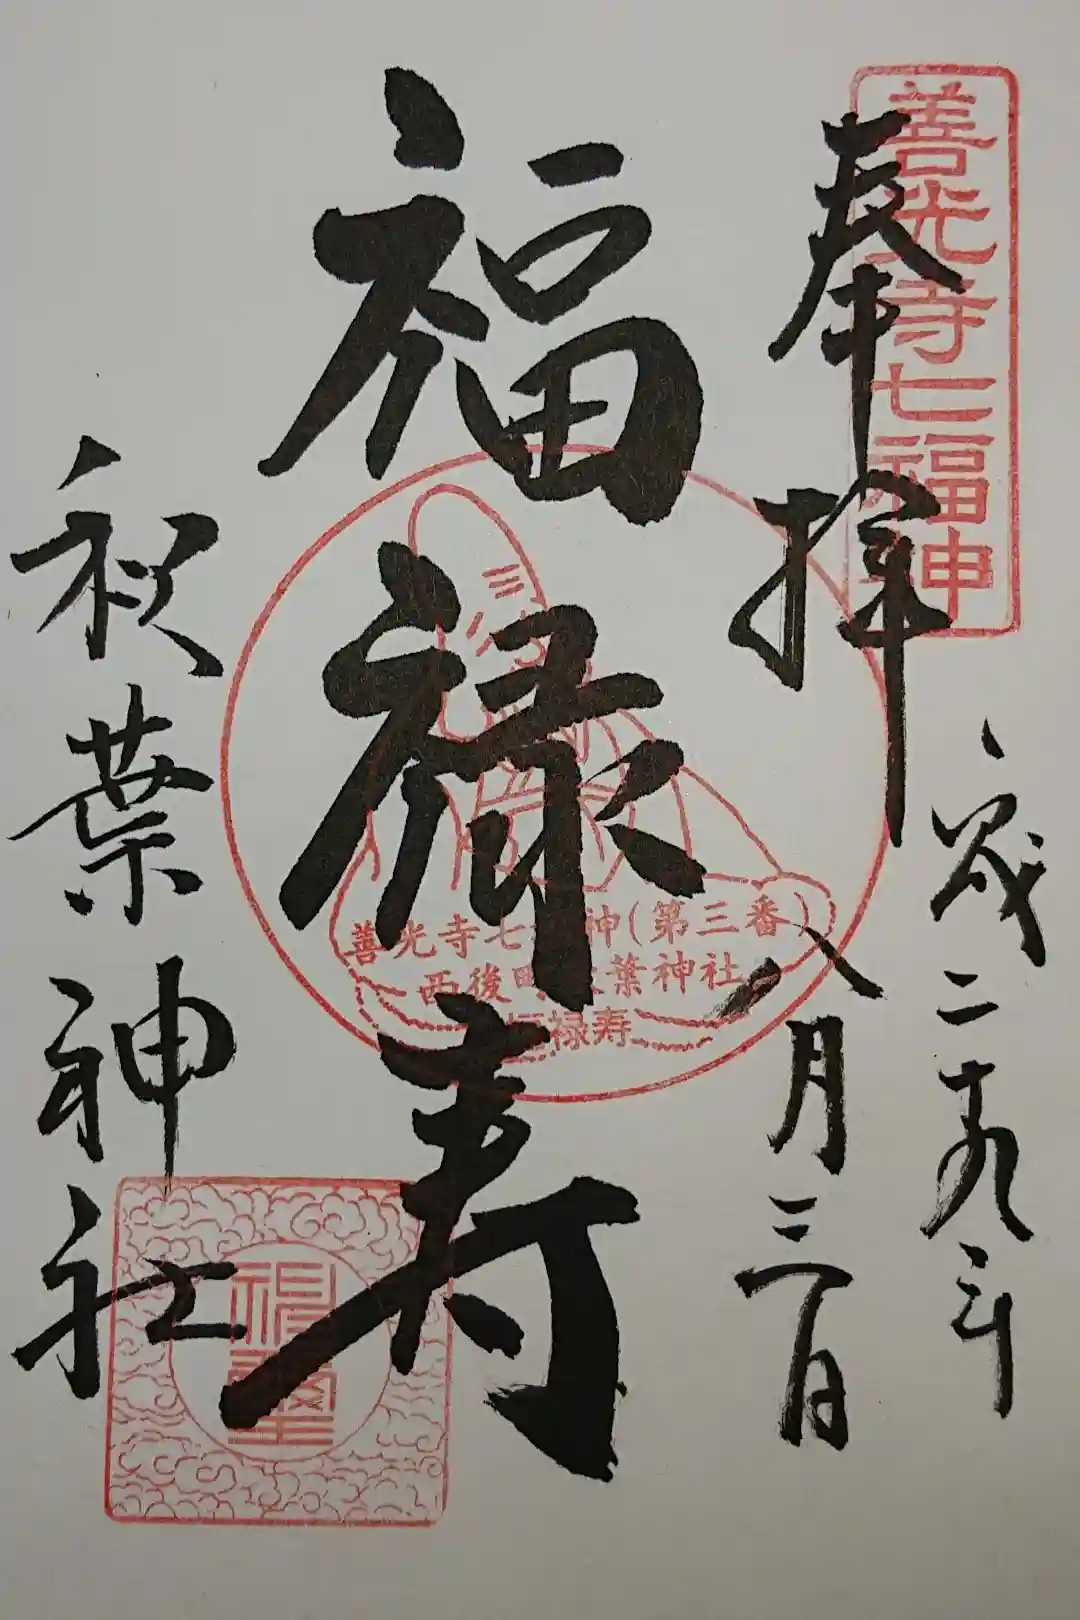 善光寺七福神
奉拝
歳二十九年
八月三日
福禄寿
善光寺七神(第三番)
西後町葉神社
福禄寿
秋葉神社